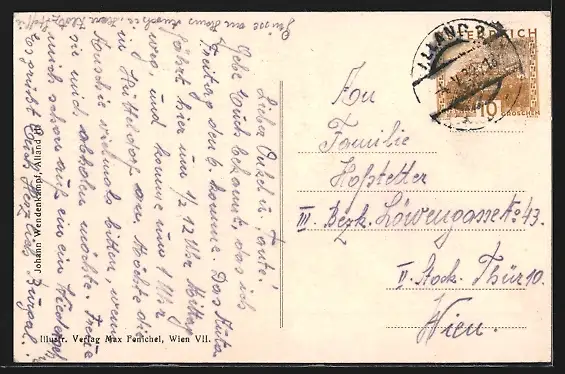 Grüsse an Hans
Lieber Onkel u. Tante!
Gebe Euch bekannt, das ich
Freitag den 6. komme. Das Auto
fährt hier um 1/2 12 Uhr Mittag
weg, und komme um 1 Uhr
in Hütteldorf an. Möchte die
vielmals bitten, wenn
sie mich abholen möchte. Freue
mich schon auf ein Wiederseh
Es grüßt Euch Herzlichst
Johann Wendenkampf, Alland III
Illustr. Verlag Max Fenichel, Wien VII.
ALLAND
ÖSTERREICH
10 GROSCHEN
An
Familie
Hofstetter
III. Bezk. Löwengasse No 43.
II. Stock. Thür 10.
Wien.